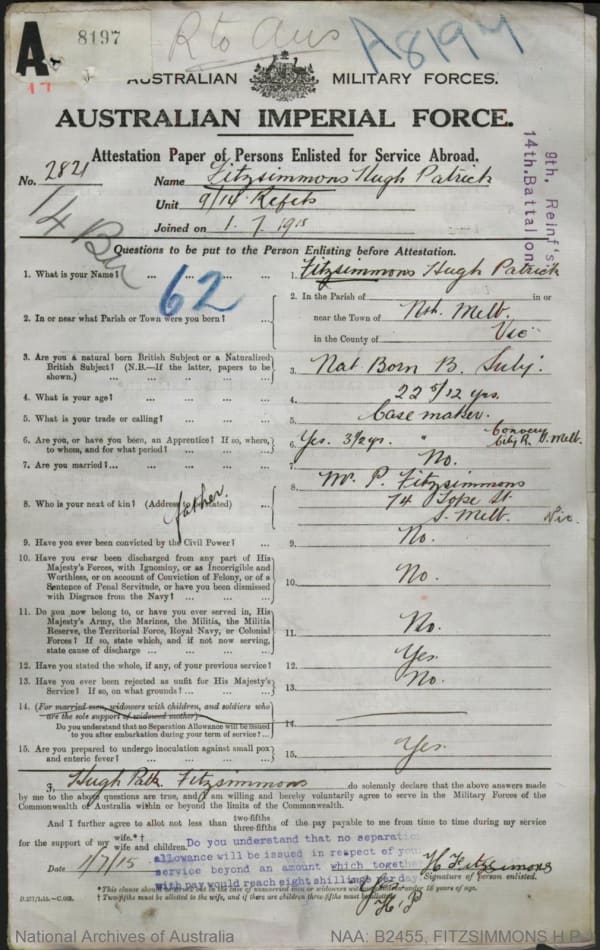 A
8197
R to Aus
A8197
17
AUSTRALIAN MILITARY FORCES.
AUSTRALIAN IMPERIAL FORCE.
Attestation Paper of Persons Enlisted for Service Abroad.
9th. Reinf's
14th. Battalion
No. 2821 Name Fitzsimmons Hugh Patrick
Unit 9/14 Refts
Joined on 1.7.1915
14 Bn
Questions to be put to the Person Enlisting before Attestation.
1. What is your Name? ... ... ... ... 1. Fitzsimmons Hugh Patrick
62
2. In or near what Parish or Town were you born? ...
2. In the Parish of in or
near the Town of Nth. Melb.
in the County of Vic
3. Are you a natural born British Subject or a Naturalized
British Subject? (N.B.—If the latter, papers to be
shown.) ... ... ... ...
3. Nat Born B. Subj.
4. What is your age? ... ... ... ... 4. 22 5/12 yrs.
5. What is your trade or calling? ... ... ... 5. Case maker.
6. Are you, or have you been, an Apprentice? If so, where,
to whom, and for what period? ... ... ...
6. Yes. 3½ yrs. " City R. S. Melb.
7. Are you married? ... ... ... ... 7. No.
8. Who is your next of kin? (Address to be stated) ...
father.
8. Mr. P. Fitzsimmons
74 Tope St
S. Melb. Vic.
9. Have you ever been convicted by the Civil Power? ... 9. No.
10. Have you ever been discharged from any part of His
Majesty's Forces, with Ignominy, or as Incorrigible and
Worthless, or on account of Conviction of Felony, or of a
Sentence of Penal Servitude, or have you been dismissed
with Disgrace from the Navy? ... ... ...
10. No.
11. Do you now belong to, or have you ever served in, His
Majesty's Army, the Marines, the Militia, the Militia
Reserve, the Territorial Force, Royal Navy, or Colonial
Forces? If so, state which, and if not now serving,
state cause of discharge ... ... ...
11. No.
12. Have you stated the whole, if any, of your previous service? 12. Yes.
13. Have you ever been rejected as unfit for His Majesty's
Service? If so, on what grounds? ... ... ...
13. No.
14. (For married men, widowers with children, and soldiers who
are the sole support of widowed mother)
Do you understand that no Separation Allowance will be issued
to you after embarkation during your term of service? ...
14.
15. Are you prepared to undergo inoculation against small pox
and enteric fever? ... ... ... ...
15. Yes.
I, Hugh Patk. Fitzsimmons do solemnly declare that the above answers made
by me to the above questions are true, and I am willing and hereby voluntarily agree to serve in the Military Forces of the
Commonwealth of Australia within or beyond the limits of the Commonwealth.
And I further agree to allot not less than two-fifths three-fifths of the pay payable to me from time to time during my service
for the support of my wife.* † wife and children.
Do you understand that no separation
allowance will be issued in respect of your
service beyond an amount which together
with pay would reach eight shillings per day
Date 1/7/15
H Fitzsimmons
Signature of person enlisted.
Yes
H.P
*This clause should be struck out in the case of unmarried men or widowers without children under 18 years of age.
†Two-fifths must be allotted to the wife, and if there are children three-fifths must be allotted.
National Archives of Australia
NAA: B2455, FITZSIMMONS H P